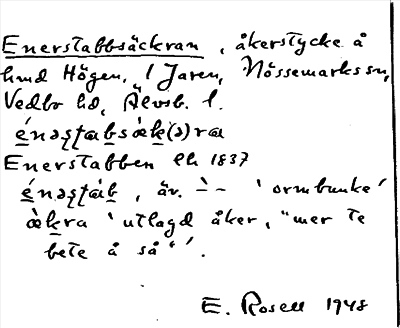 Enerstabbsäckran, åkerstycke å
hmd Högen, 1 Jaren, Nössemarks sn,
Vedbo hd, Älvsb. l.
énəṣṭabsàk(ə)ra
Enerstabben lh 1837
énəṣṭàb, äv. –̀ – 'ormbunke'
àkra 'utlagd åker, "mer te
bete å så"'.
E. Rosell 1948